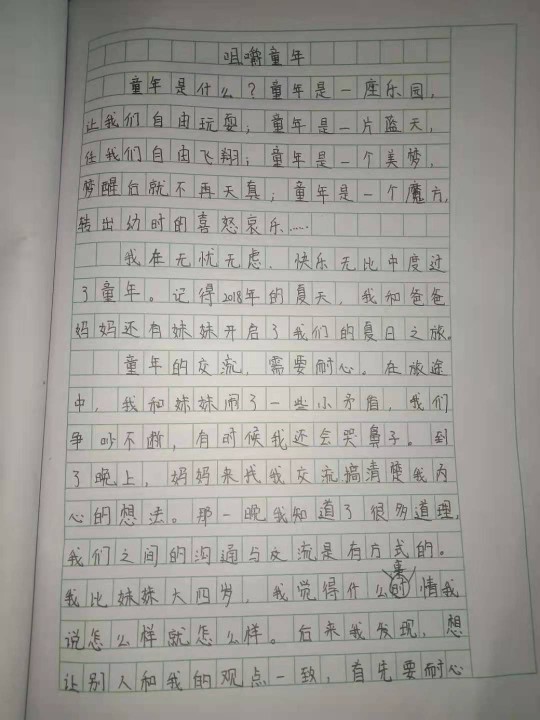 咀嚼童年
童年是什么？童年是一座乐园，
让我们自由玩耍；童年是一片蓝天，
任我们自由飞翔；童年是一个美梦，
梦醒后就不再天真；童年是一个魔方，
转出幼时的喜怒哀乐……
我在无忧无虑，快乐无比中度过
了童年。记得2018年的夏天，我和爸爸
妈妈还有妹妹开启了我们的夏日之旅。
童年的交流，需要耐心。在旅途
中，我和妹妹闹了一些小矛盾，我们
争吵不断，有时候我还会哭鼻子。到
了晚上，妈妈来找我交流搞清楚我内
心的想法。那一晚我知道了很多道理，
我们之间的沟通与交流是有方式的。
我比妹妹大四岁，我觉得什么事情我
说怎么样就怎么样。后来我发现，想
让别人和我的观点一致，首先要耐心